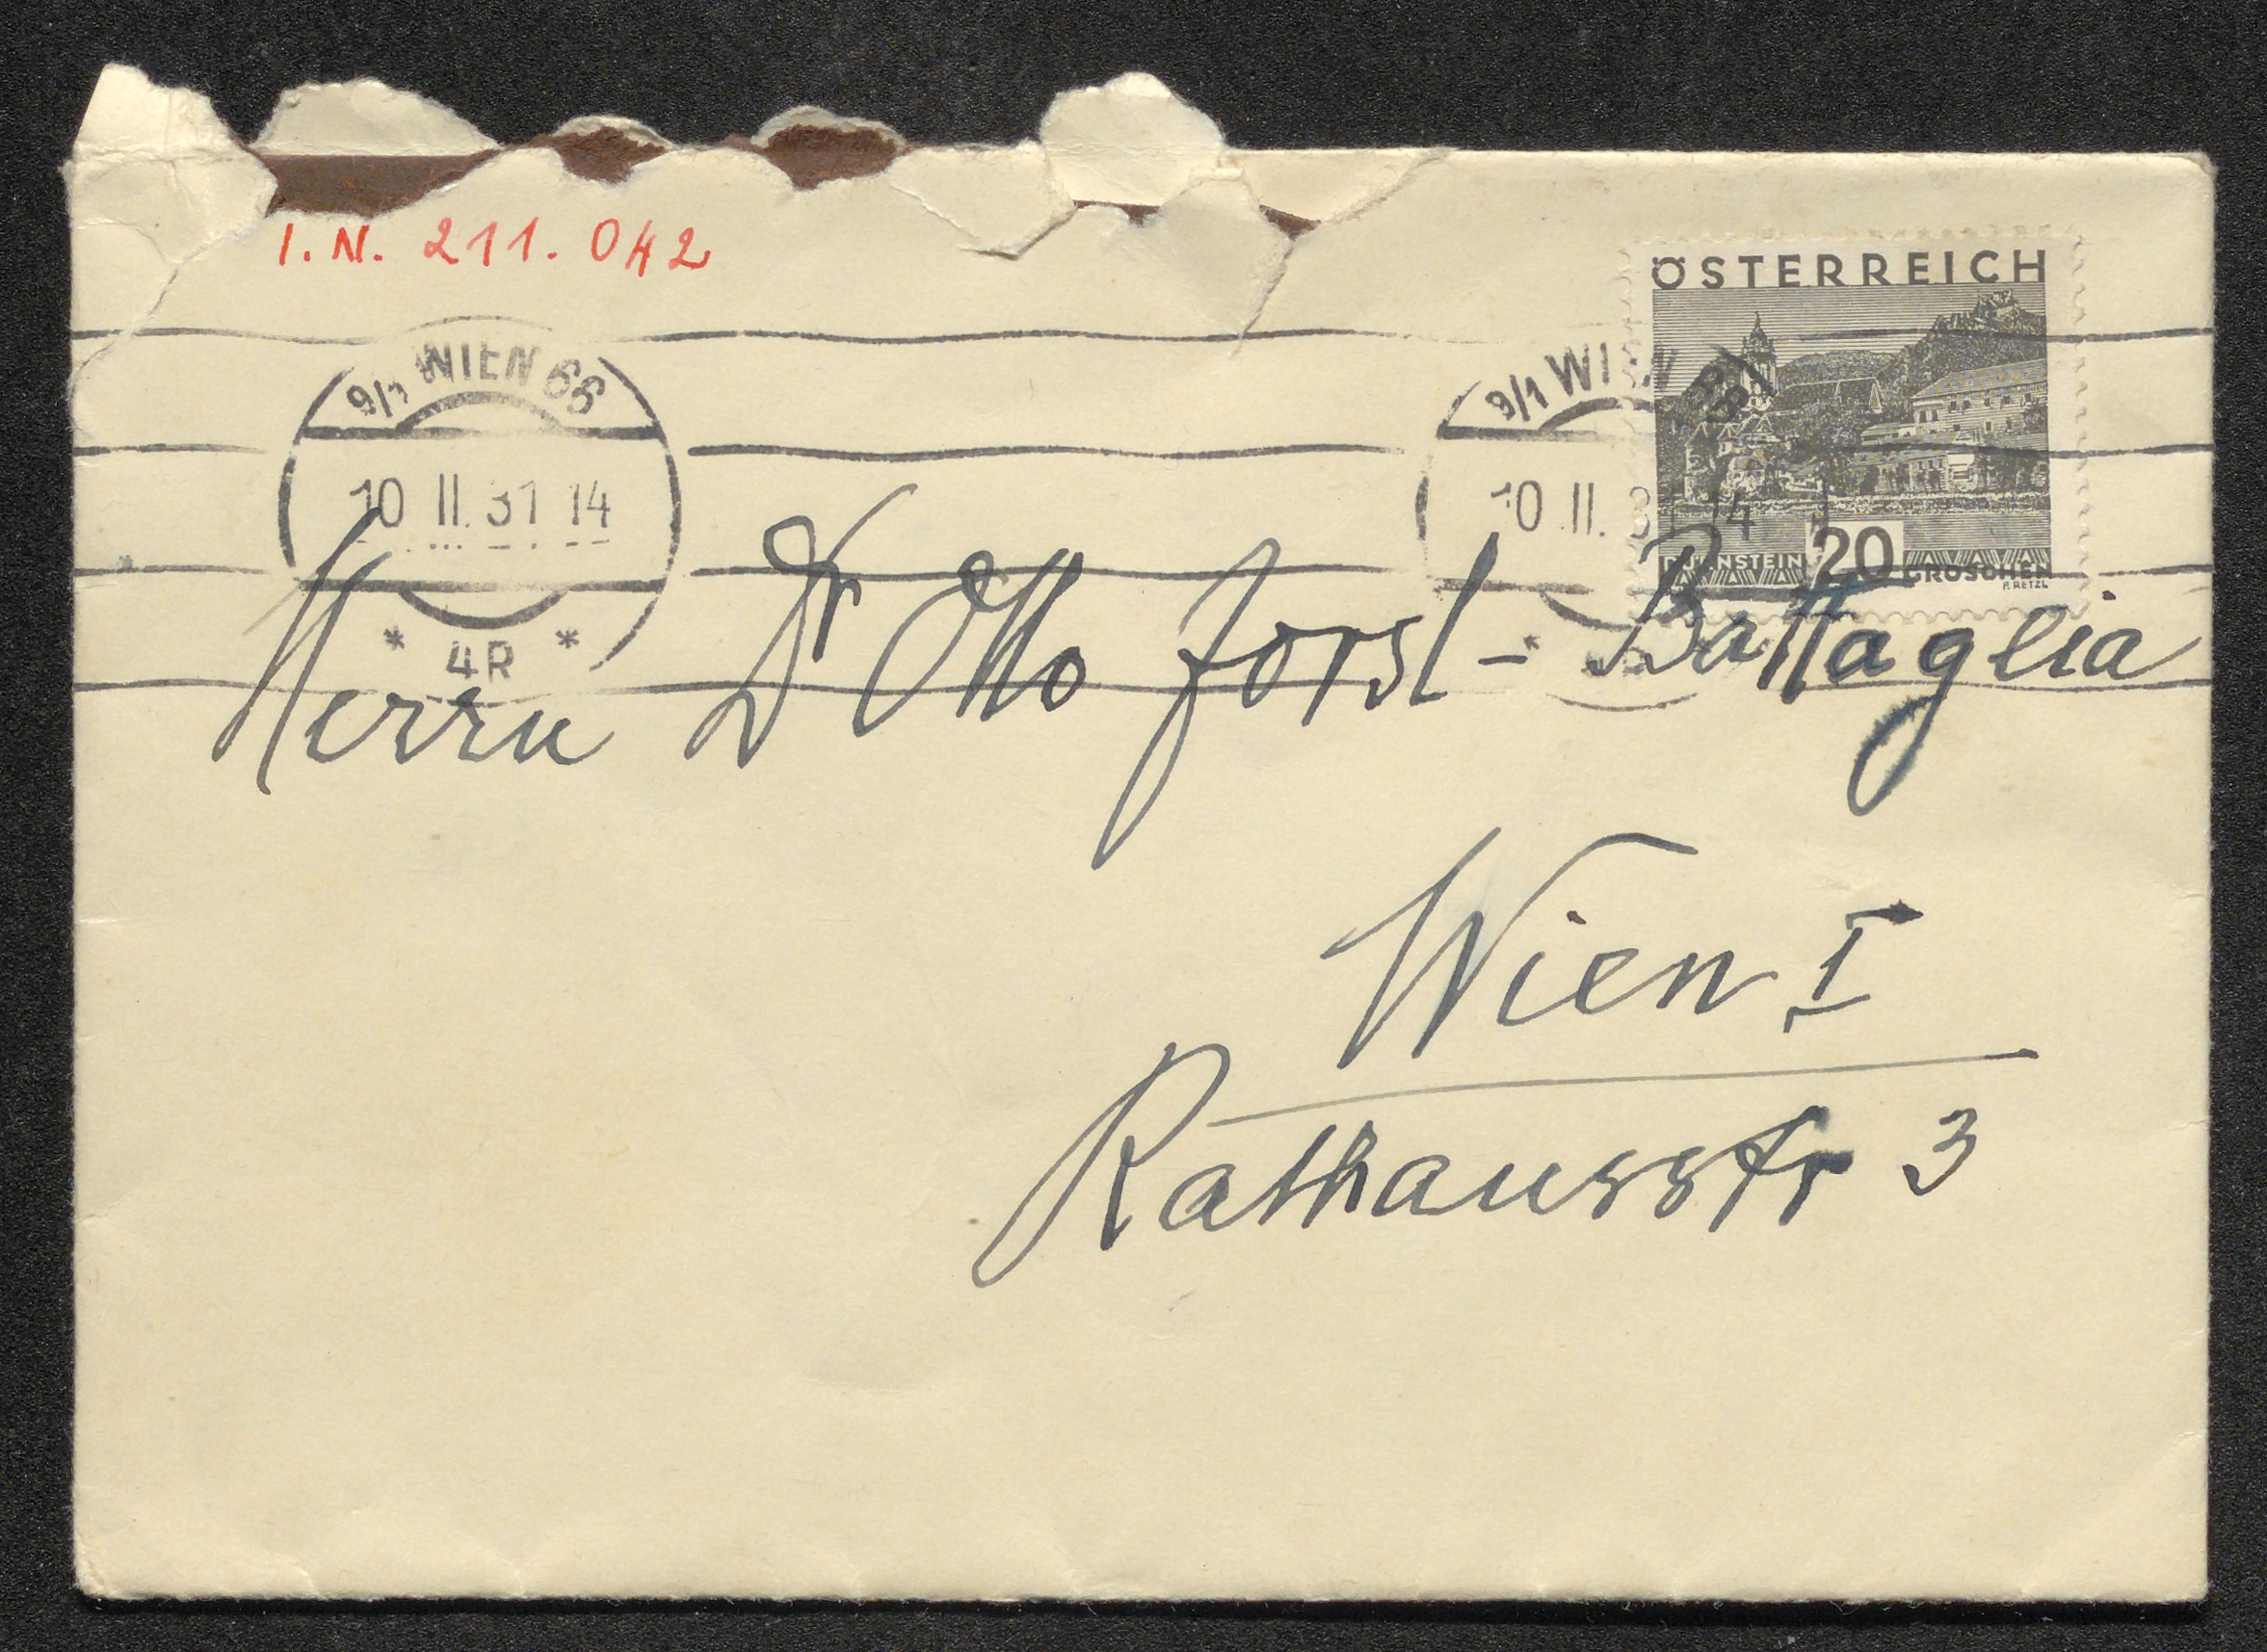 I.N. 211.042
ÖSTERREICH
9/1 WIEN 66
10 II. 31 14
* 4R *
9/1 WIEN 66
10 II. 31 14
DÜRNSTEIN 20 GROSCHEN
P. RETZL
Herrn Dr Otto Forst-Battaglia
Wien I
Rathausstr 3